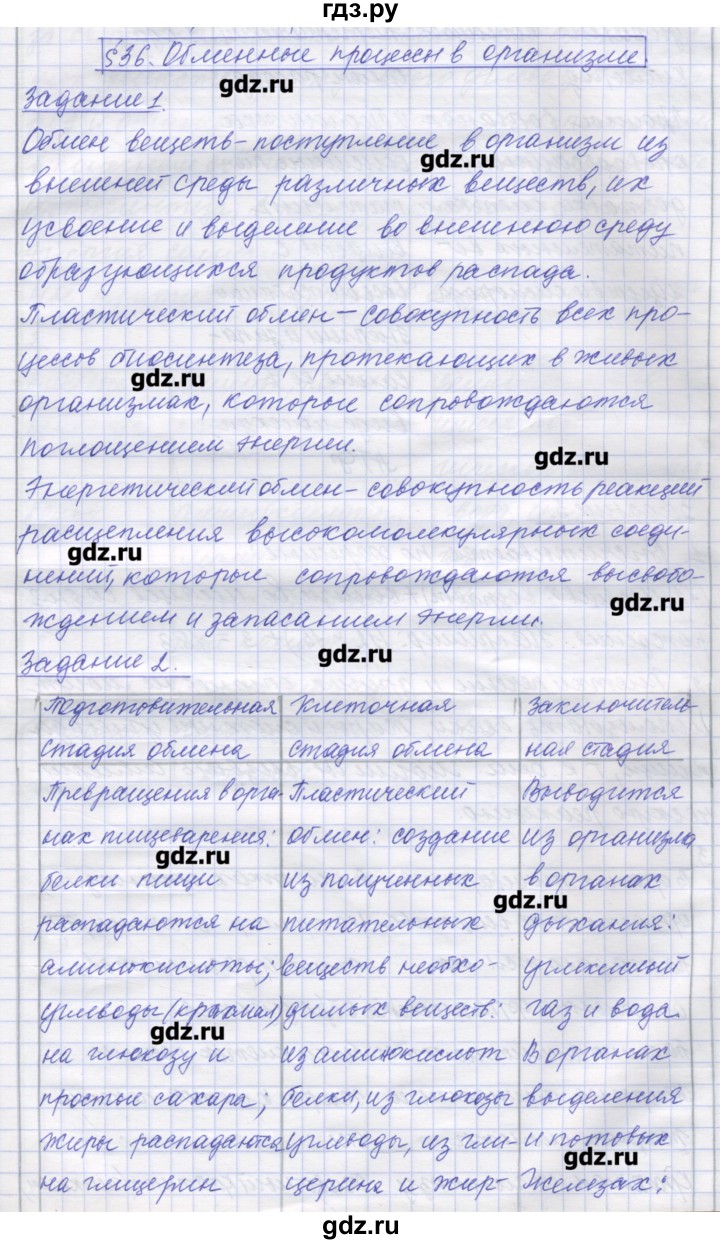 гдз.ру
§36. Обменные процессы в организме.
gdz.ru
Задание 1.
Обмен веществ - поступление в организм из
gdz.ru
внешней среды различных веществ, их
усвоение и выделение во внешнюю среду
образующихся продуктов распада.
Пластический обмен - совокупность всех про-
цессов биосинтеза, протекающих в живых
gdz.ru
организмах, которые сопровождаются
поглощением энергии.
gdz.ru
Энергетический обмен - совокупность реакций
расщепления высокомолекулярных соеди-
gdz.ru
нений, которые сопровождаются высвобо-
gdz.ru
ждением и запасанием энергии.
Задание 2.
gdz.ru
Подготовительная
стадия обмена
Клеточная
стадия обмена
Заключитель-
ная стадия
Превращения в орга-
нах пищеварения:
gdz.ru
белки пищи
распадаются на
аминокислоты;
углеводы (крахмал)
gdz.ru
на глюкозу и
простые сахара;
жиры распадаются
на глицерин
Пластический
обмен: создание
из полученных
питательных
веществ необхо-
димых веществ:
из аминокислот
белки, из глюкозы
углеводы, из гли-
церина и жир-
Выводится
из организма
в органах
gdz.ru
дыхания:
углекислый
газ и вода.
В органах
выделения
и потовых
gdz.ru
железах:
gdz.ru